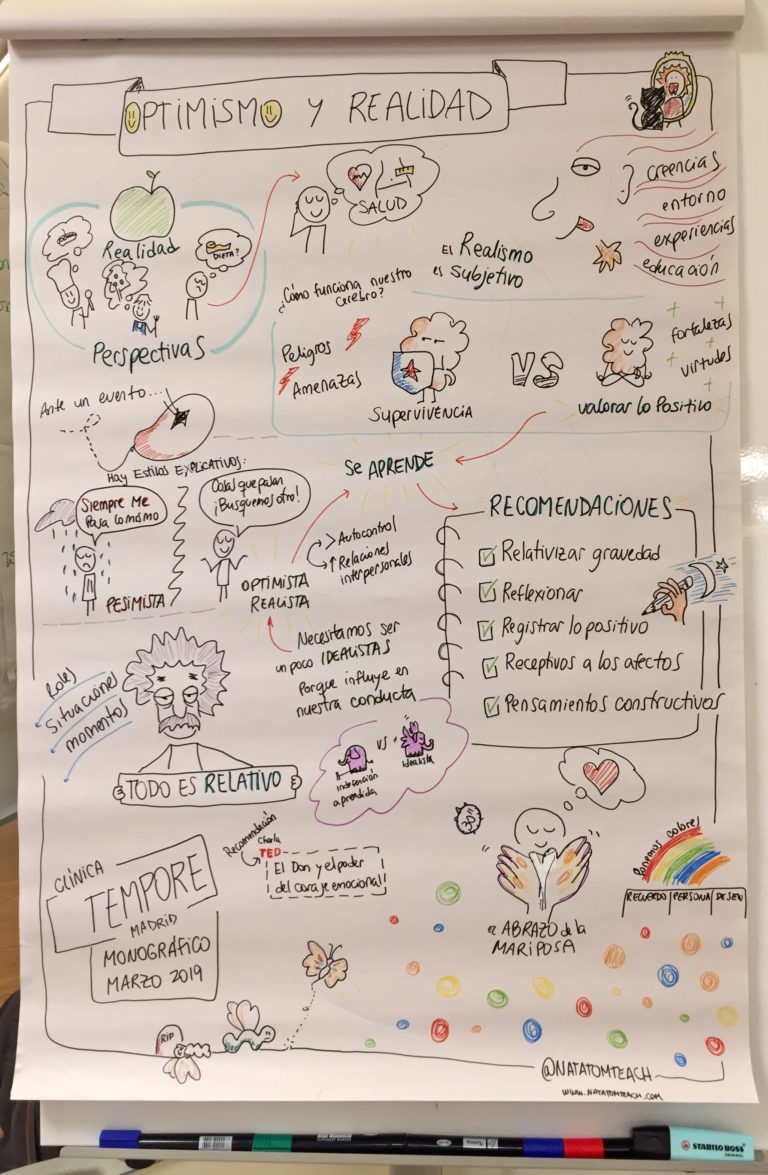 OPTIMISMO Y REALIDAD
SALUD
Realidad
DIETA?
Perspectivas
creencias
entorno
experiencias
educación
El Realismo
es subjetivo
¿Cómo funciona nuestro
cerebro?
Peligros
Amenazas
SUPERVIVENCIA
VS
fortalezas
virtudes
valorar lo Positivo
Ante un evento...
Hay ESTILOS EXPLICATIVOS:
Siempre Me
Pasa lo mismo
PESIMISTA
¡Busquemos otro!
OPTIMISTA
REALISTA
Se APRENDE
> Autocontrol
↑ Relaciones
interpersonales
RECOMENDACIONES
Relativizar gravedad
Reflexionar
Registrar lo positivo
Receptivos a los afectos
Pensamientos constructivos
Necesitamos ser
un poco IDEALISTAS
Porque influye en
nuestra conducta
Roles
Situaciones
momentos
TODO ES RELATIVO
Indefensión
aprendida
VS
Idealista
Recomendación
Charla
TED
El Don y el poder
del coraje emocional
CLÍNICA
TEMPORE
MADRID
MONOGRÁFICO
MARZO 2019
30"
el ABRAZO de la
MARIPOSA
Ponemos colores
RECUERDO
PERSONA
DESEO
RIP
@NATATOMTEACH
www.NATATOMTEACH.COM
STABILO BOSS
ORIGINAL